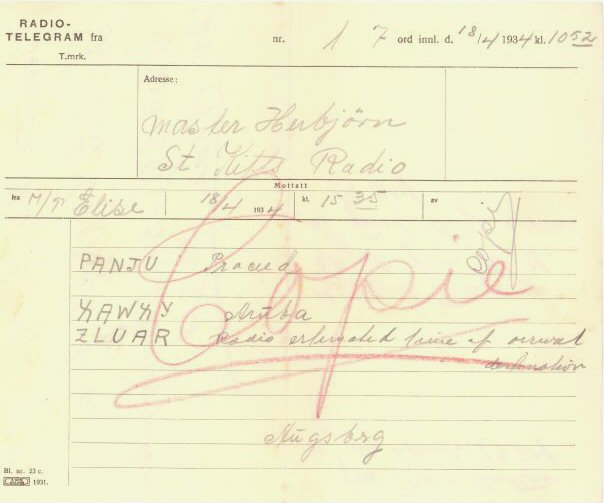 RADIO-
TELEGRAM fra nr. 1 7 ord innl. d. 18/4 1934 kl. 10 52
T.mrk.
Adresse:
Master Herbjörn
St Kitts Radio
Mottatt
fra M/T Elise 18/4 1934 kl. 15 35 av
Copie
copie
PANJU Proceed
KAWKY Aruba
ZLUAR Radio estimated time of arrival
destination
Augsberg
Bl. nr. 23 c.
1931.